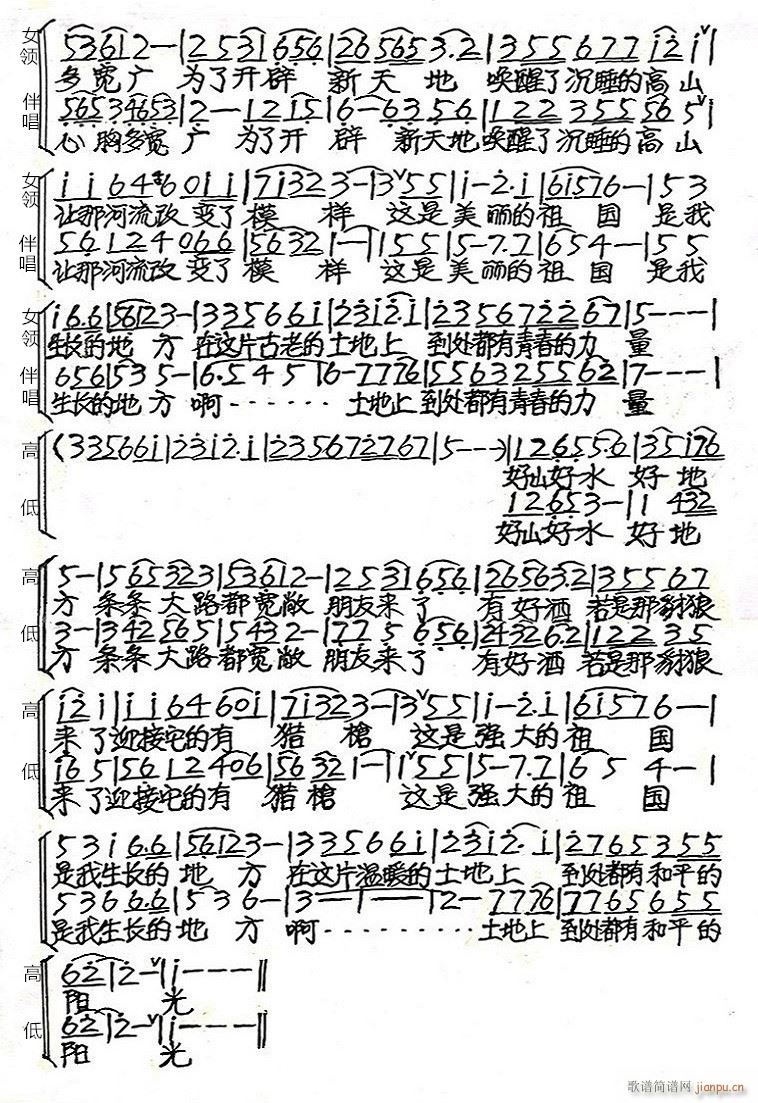 女领 5 3 6 1 2 — | 2 5 3 1 6 5 6 | 2 6 5 6 5 3 . 2 | 3 5 5 6 7 7 i 2 i |
多宽广 为了开辟 新天地 唤醒了沉睡的高山
伴唱 5 6 5 3 4 6 5 3 | 2 — 1 2 1 5 | 6 — 6 3 5 6 | 1 2 2 3 5 5 5 6 5 |
心胸多宽广 为了开辟 新天地唤醒了沉睡的高山
女领 i i 6 4 6 0 i i | 7 i 3 2 3 — | 3 5 5 | i — 2 . i | 6 i 5 7 6 — | 5 3
让那河流改变了模样 这是美丽的祖国 是我
伴唱 5 6 1 2 4 0 6 6 | 5 6 3 2 1 — | 1 5 5 | 5 — 7 . 7 | 6 5 4 — | 5 5
让那河流改变了模样 这是美丽的祖国 是我
女领 i 6 . 6 | 5 6 1 2 3 — | 3 3 5 6 6 i | 2 3 i 2 . i | 2 3 5 6 7 2 2 6 7 | 5 — — — |
生长的地方 在这片古老的土地上 到处都有青春的力量
伴唱 6 5 6 | 5 3 5 — | 6 . 5 4 5 | 6 — 7 7 7 6 | 5 5 6 3 2 5 5 6 2 | 7 — — — |
生长的地方 啊 · · · · · · 土地上到处都有青春的力量
高 ( 3 3 5 6 6 i | 2 3 i 2 . i | 2 3 5 6 7 2 7 6 7 | 5 — — — ) | 1 2 6 5 5 . 6 | 3 5 i 7 6
好山好水 好地
低 1 2 6 5 3 — | 1 4 3 2
好山好水 好地
高 5 — | 5 6 5 3 2 3 | 5 3 6 1 2 — | 2 5 3 1 6 5 6 | 2 6 5 6 3 . 2 | 3 5 5 6 7
方 条条大路都宽敞 朋友来了 有好酒 若是那豺狼
低 3 — | 3 4 2 5 6 5 | 5 4 3 2 — | 7 7 5 6 5 6 | 2 4 3 2 6 2 | 1 2 2 3 5
方 条条大路都宽敞 朋友来了 有好酒 若是那豺狼
高 i 2 i | i i 6 4 6 0 i | 7 i 3 2 3 — | 3 5 5 | i — 2 . i | 6 i 5 7 6 — |
来了迎接它的有 猎枪 这是强大的祖国
低 i 6 5 | 5 6 1 2 4 0 6 | 5 6 3 2 1 — | 1 5 5 | 5 — 7 . 7 | 6 5 4 — |
来了迎接它的有 猎枪 这是强大的祖国
5 3 i 6 . 6 | 5 6 1 2 3 — | 3 3 5 6 6 i | 2 3 i 2 . i | 2 7 6 5 3 5 5
是我生长的地方 在这片温暖的土地上 到处都有和平的
5 3 6 6 . 6 | 5 3 6 — | 3 — | — — | 2 — 7 7 7 6 | 7 7 6 5 6 5 5
是我生长的地方 啊 · · · · · · · · · 土地上 到处都有和平的
高 6 2 | 2 — | i — — — ‖
阳光
低 6 2 | 2 — | i — — — ‖
阳光
歌谱简谱网 jianpu.cn